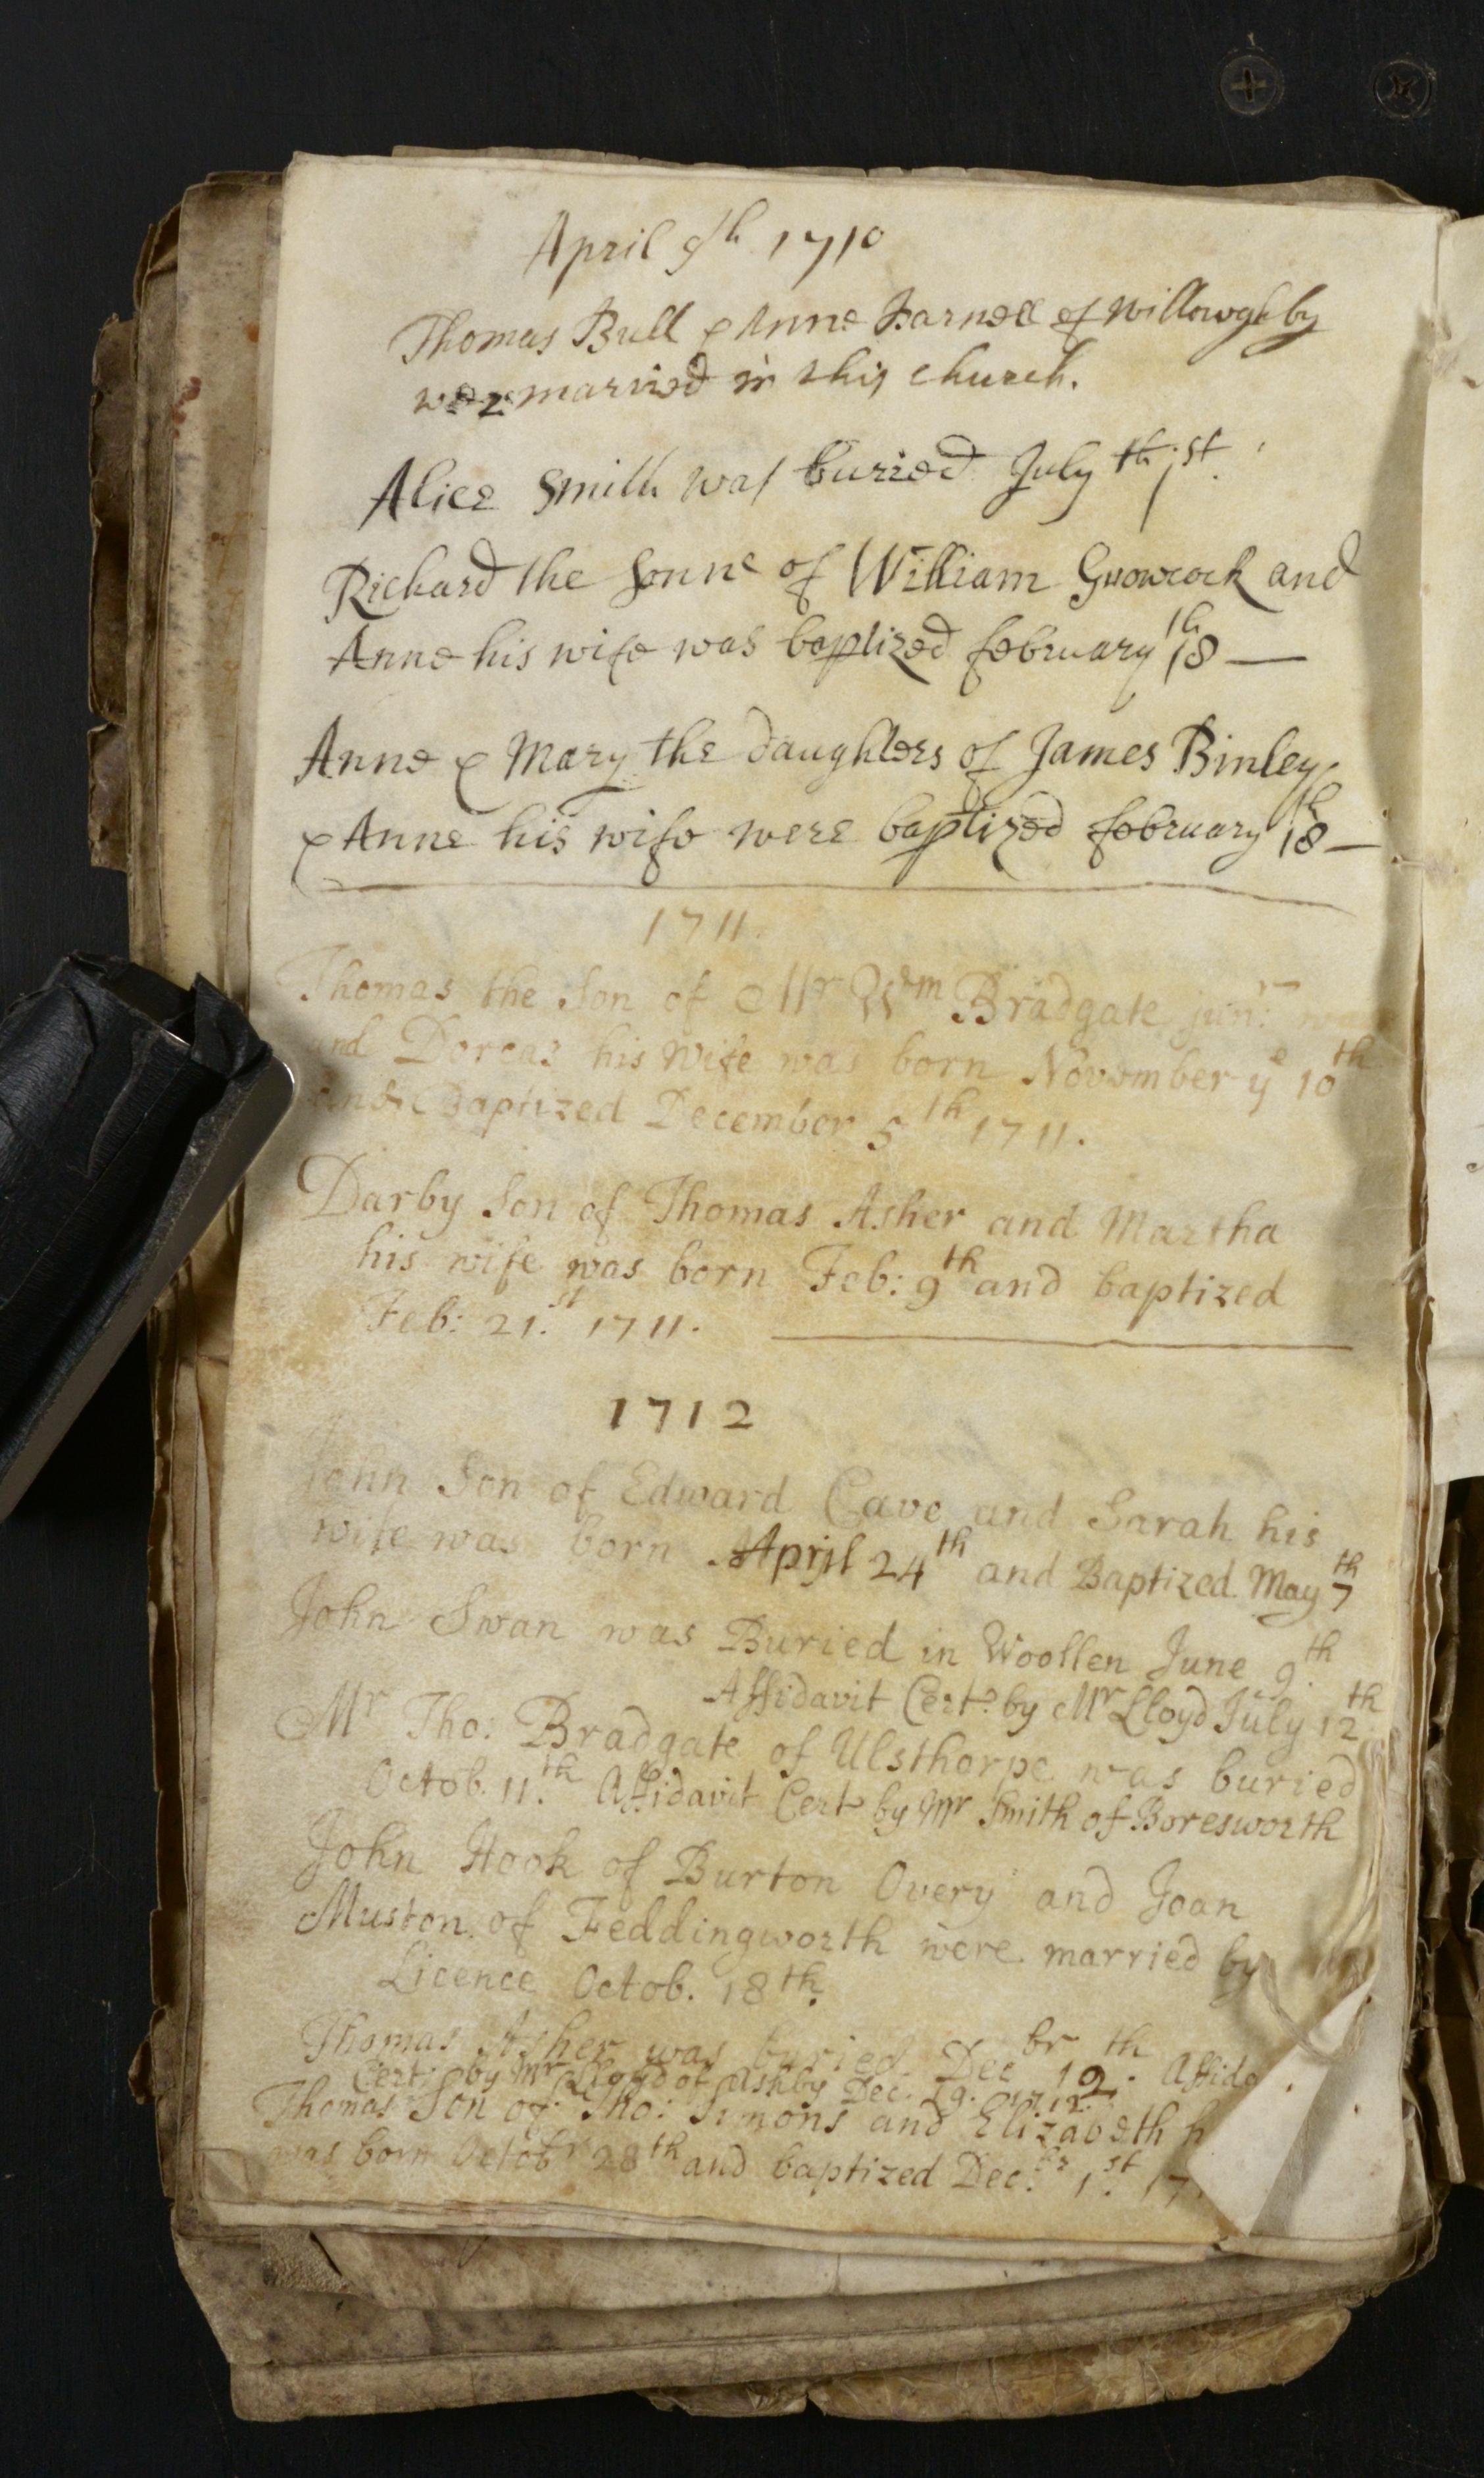 April 9th 1710
Thomas Bull & Anne Farnell of Willowghby
were married in this church.
Alice Smith was buried July th 1st.
Richard the sonne of William Gnowcock and
Anne his wife was baptized february 18th
Anne & Mary the daughters of James Binley
& Anne his wife were baptized february 18th
1711.
Thomas the Son of Mr Wm Bradgate junr. was
and Dorcas his Wife was born November ye 10th
and Baptized December 5th 1711.
Darby Son of Thomas Asher and Martha
his wife was born Feb: 9th and baptized
Feb: 21.st 1711.
1712
John Son of Edward Cave and Sarah his
wife was born April 24th and Baptized May 7th
John Swan was Buried in Woollen June 9th.
Affidavit Cert. by Mr Lloyd July 12th
Mr Tho: Bradgate of Ulsthorpe was buried
Octob. 11.th Affidavit Cert by Mr Smith of Boresworth
John Hook of Burton Overy and Joan
Muston of Feddingworth were married by
Licence Octob. 18th.
Thomas Asher was buried Decbr 12th. Affida
Cert: by Mr Lloyd of Ashby Dec. 19. 1712.
Thomas Son of Tho: Simons and Elizabeth h
was born Octobr 28th and baptized Dec.br 1.st 17